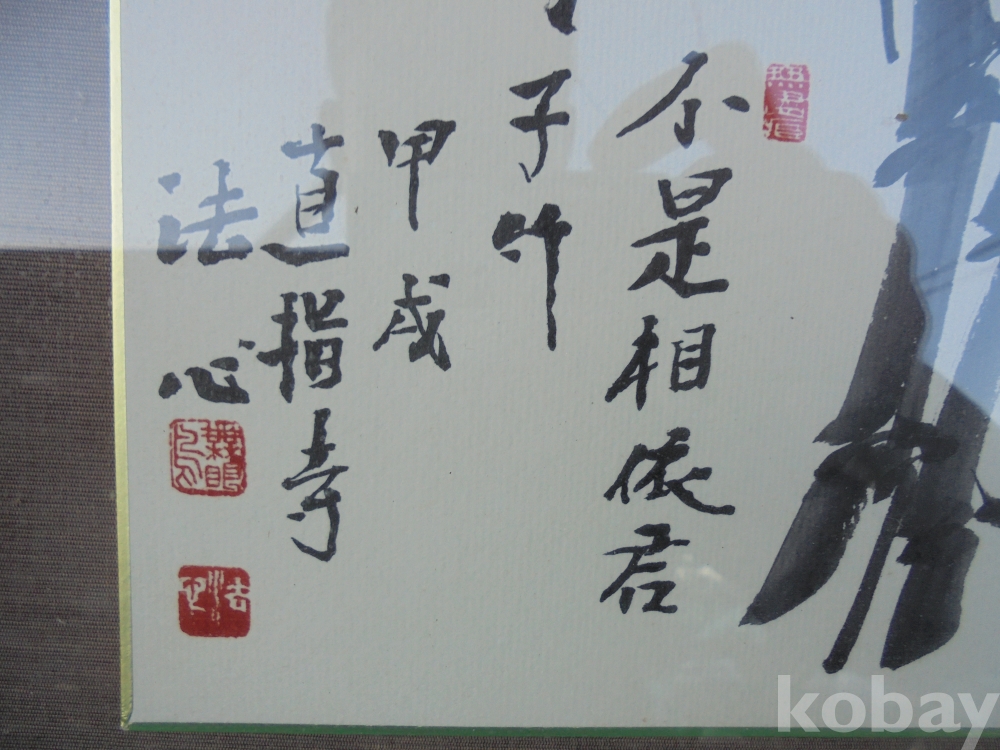 不是相依君
子竹
甲戌
直指寺
法心
kobay